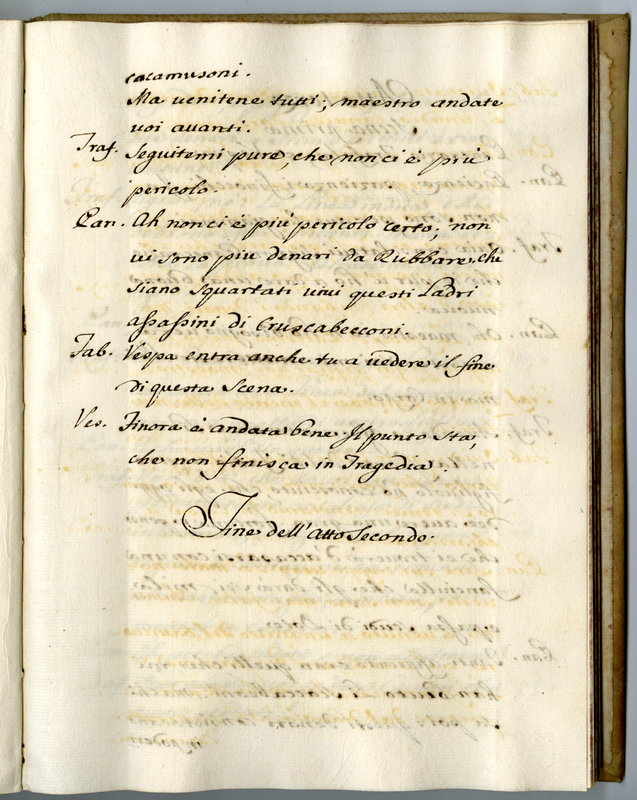 cacamusoni.
Ma venitene tutti; maestro andate
voi avanti.
Traf. Seguitemi pure, che non ci è più
pericolo.
Pan. Ah non ci è più pericolo certo; non
vi sono più denari da Rubbare. Che
siano squartati vivi questi Ladri
assassini di Cruscabecconi.
Fab. Vespa entra anche tu a vedere il fine
di questa Scena.
Ves. Finora è andata bene. Il punto sta,
che non finisca in Tragedia.
Fine dell'Atto Secondo.